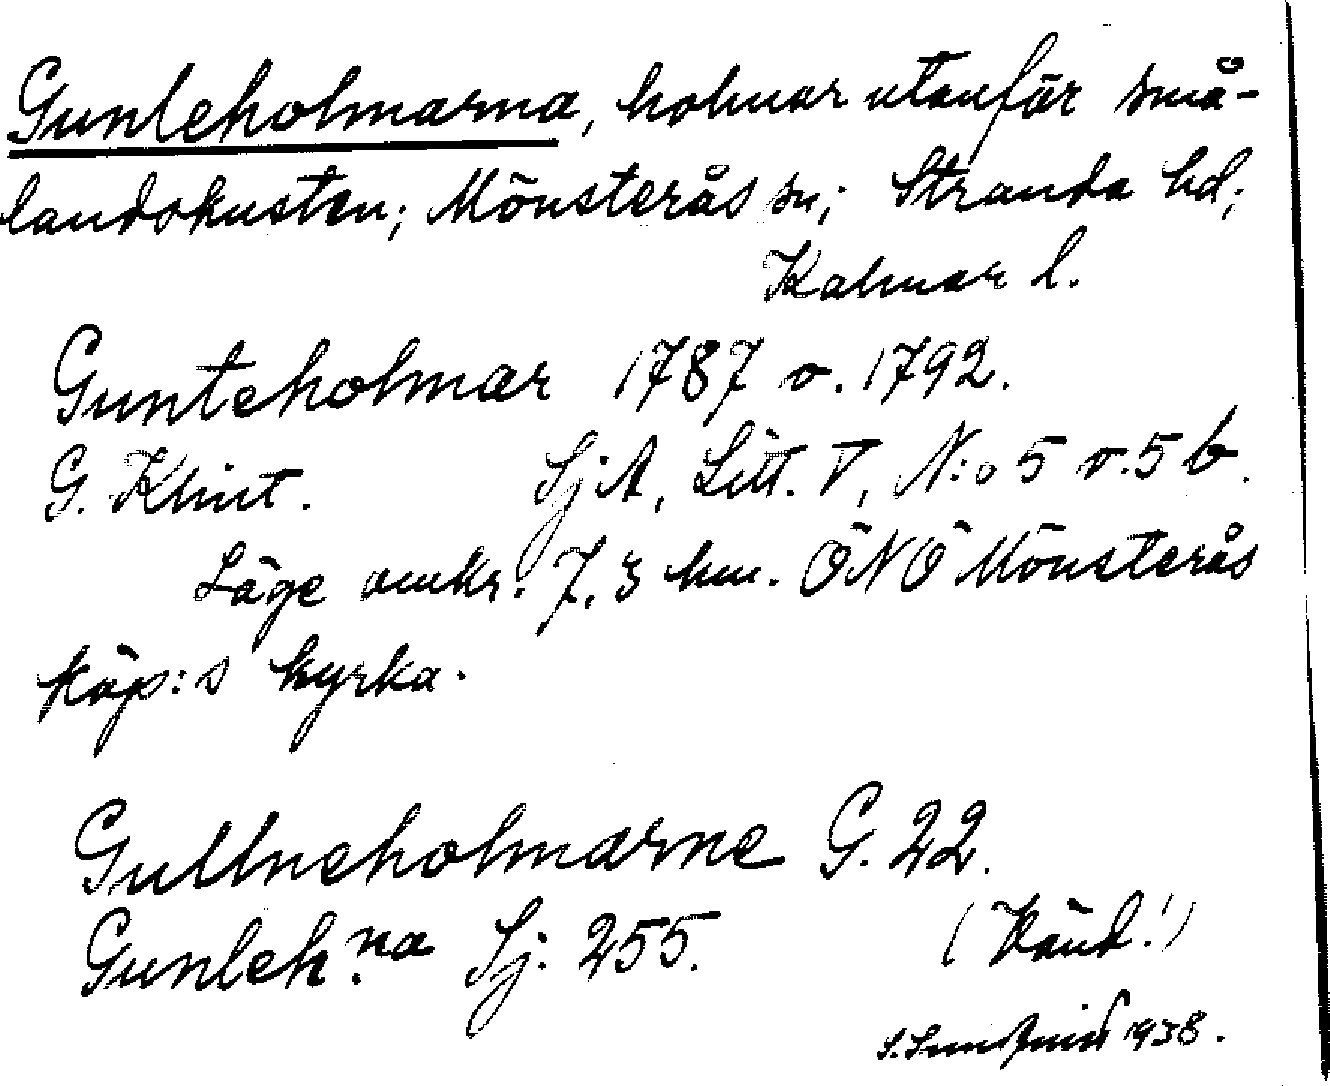 Gunleholmarna, holmar utanför små-
landskusten; Mönsterås sn; Stranda hd;
Kalmar l.
Gunteholmar 1787 o. 1792.
G. Klint. SjA, Litt. V, N:o 5 o. 5 b.
Läge omkr. 7,3 km. ÖNÖ Mönsterås
köp:s kyrka.
Gullneholmarne G. 22.
Gunleh.na Sj: 255. (Känd!)
1938.